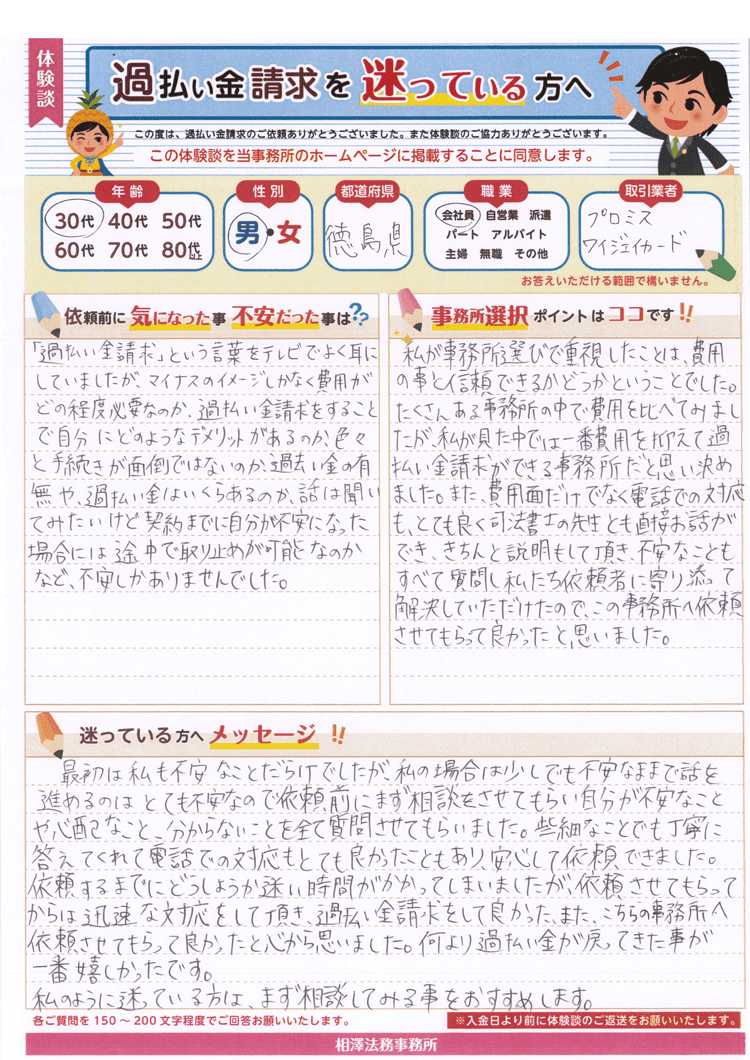 体験談
過払い金請求を迷っている方へ
この度は、過払い金請求のご依頼ありがとうございました。また体験談のご協力ありがとうございます。
この体験談を当事務所のホームページに掲載することに同意します。
年齢
30代 40代 50代
60代 70代 80代以上
性別
男・女
都道府県
徳島県
職業
会社員 自営業 派遣
パート アルバイト
主婦 無職 その他
取引業者
プロミス
ワイジェイカード
お答えいただける範囲で構いません。
依頼前に気になった事 不安だった事は??
「過払い金請求」という言葉をテレビでよく耳に
していましたが、マイナスのイメージしかなく費用が
どの程度必要なのか、過払い金請求をすること
で自分にどのようなデメリットがあるのか、色々
と手続きが面倒ではないのか、過払い金の有
無や、過払い金はいくらあるのか、話は聞い
てみたいけど契約までに自分が不安になった
場合には途中で取り止めが可能なのか
など、不安しかありませんでした。
事務所選択ポイントはココです!!
私が事務所選びで重視したことは、費用
の事と信頼できるかどうかということでした。
たくさんある事務所の中で費用を比べてみまし
たが、私が見た中では一番費用を抑えて過
払い金請求ができる事務所だと思い決め
ました。また、費用面だけでなく電話での対応
も、とても良く司法書士の先生とも直接お話が
でき、きちんと説明もして頂き、不安なことも
すべて質問し私たち依頼者に寄り添って
解決していただけたので、この事務所へ依頼
させてもらって良かったと思いました。
迷っている方へメッセージ!!
最初は私も不安なことだらけでしたが、私の場合は少しでも不安なままで話を
進めるのはとても不安なので依頼前にまず相談をさせてもらい自分が不安なこと
や心配なこと、分からないことを全て質問させてもらいました。些細なことでも丁寧に
答えてくれて電話での対応もとても良かったこともあり、安心して依頼できました。
依頼するまでにどうしようか迷い時間がかかってしまいましたが、依頼させてもらって
からは迅速な対応をして頂き、過払い金請求をして良かった、また、こちらの事務所へ
依頼させてもらって良かったと心から思いました。何より過払い金が戻ってきた事が
一番嬉しかったです。
私のように迷っている方は、まず相談してみる事をおすすめします。
各ご質問を150～200文字程度でご回答お願いいたします。
※入金日より前に体験談のご返送をお願いいたします。
相澤法務事務所